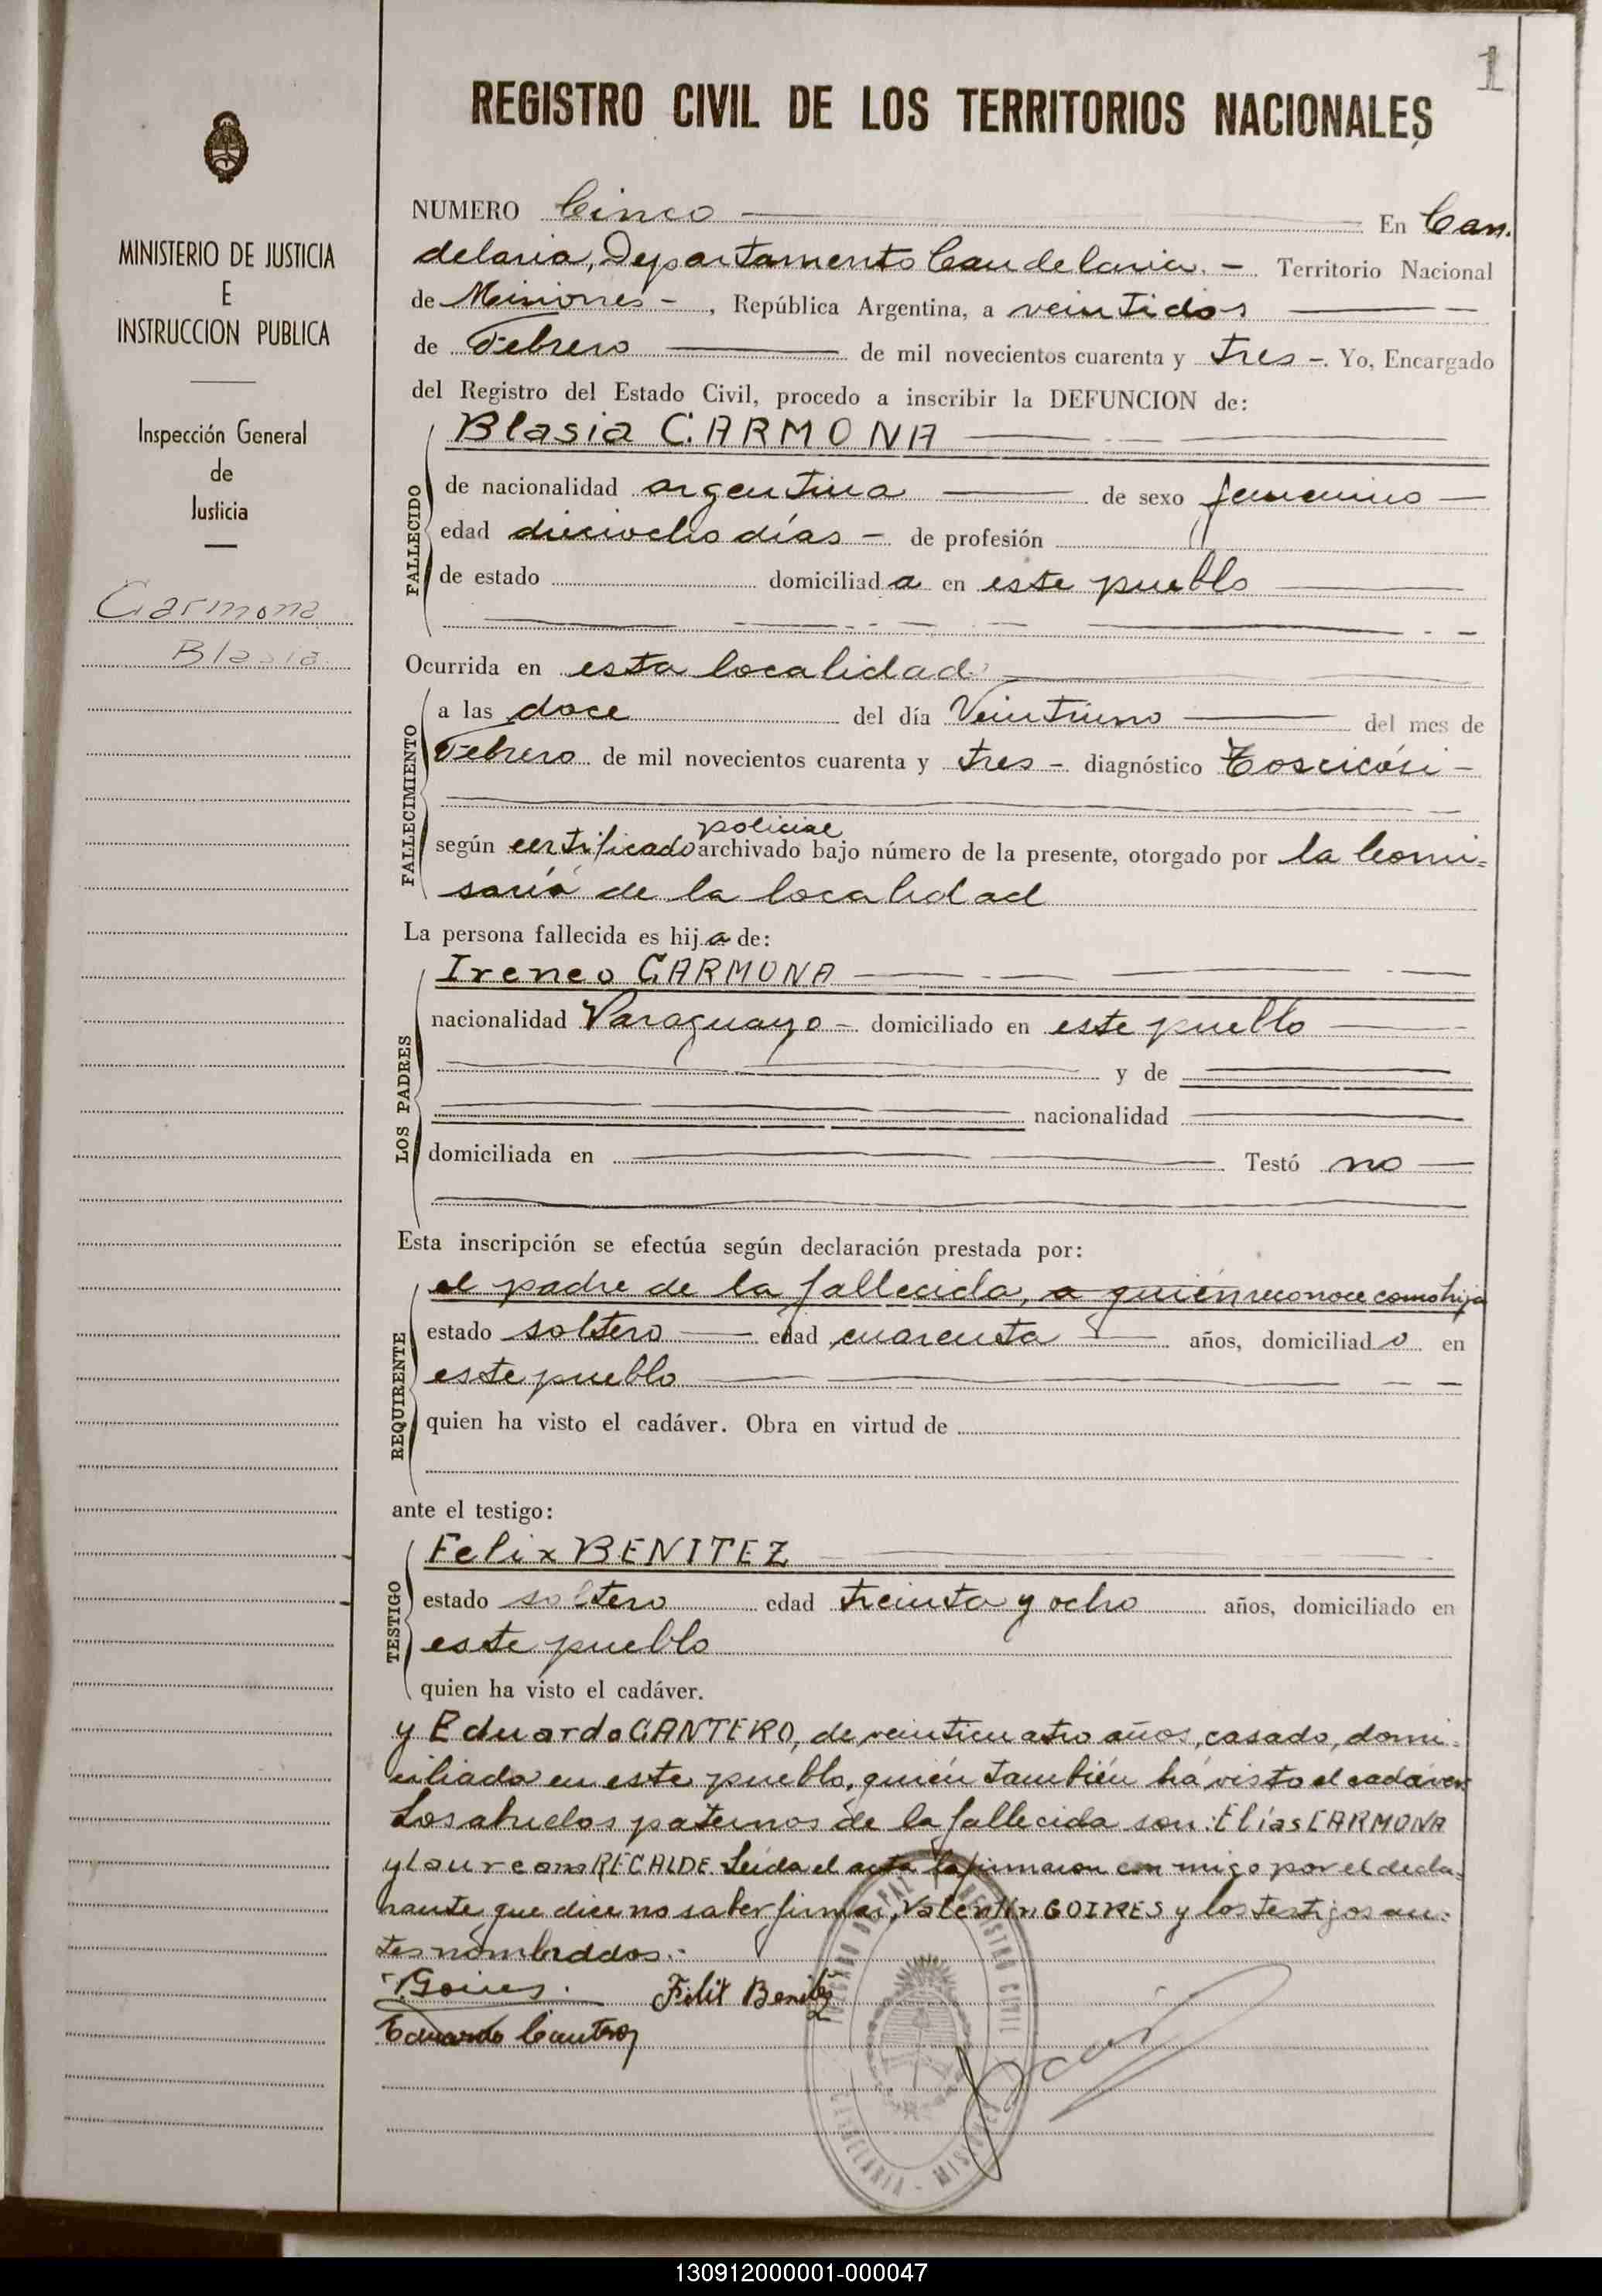 1
REGISTRO CIVIL DE LOS TERRITORIOS NACIONALES
MINISTERIO DE JUSTICIA
E
INSTRUCCION PUBLICA
Inspección General
de
Justicia
Carmona
Blasia
NUMERO Cinco En Can
delaria, Departamento Candelaria. - Territorio Nacional
de Misiones -, República Argentina, a veintidos
de Febrero de mil novecientos cuarenta y tres -. Yo, Encargado
del Registro del Estado Civil, procedo a inscribir la DEFUNCION de:
FALLECIDO
Blasia CARMONA
de nacionalidad argentina de sexo femenino
edad dieciocho días - de profesión
de estado domiciliada en este pueblo
Ocurrida en esta localidad
FALLECIMIENTO
a las doce del día Veintiuno del mes de
Febrero de mil novecientos cuarenta y tres - diagnóstico
policial
según certificado archivado bajo número de la presente, otorgado por la Comi=
saría de la localidad
La persona fallecida es hija de:
LOS PADRES
Ireneo CARMONA
nacionalidad Paraguayo - domiciliado en este pueblo
y de
nacionalidad
domiciliada en Testó no
Esta inscripción se efectúa según declaración prestada por:
REQUIRENTE
el padre de la fallecida, a quién reconoce como hija
estado soltero edad cuarenta años, domiciliado en
este pueblo
quien ha visto el cadáver. Obra en virtud de
ante el testigo:
TESTIGO
Felix BENITEZ
estado soltero edad treinta y ocho años, domiciliado en
este pueblo
quien ha visto el cadáver.
y Eduardo CANTERO, de veinticuatro años, casado, domi=
ciliado en este pueblo, quién también há visto el cadáver
Los abuelos paternos de la fallecida son: Elías CARMONA
y Laureana RECALDE. Leída el acta la firmaron con migo por el decla=
rante que dice no saber firmar, Valentín GOIRES y los testigos an=
tes nombrados.-
Goires. Felix Benitez
Eduardo Cantero
JUZGADO DE PAZ Y REGISTRO CIVIL
CANDELARIA - MISIONES
130912000001-000047